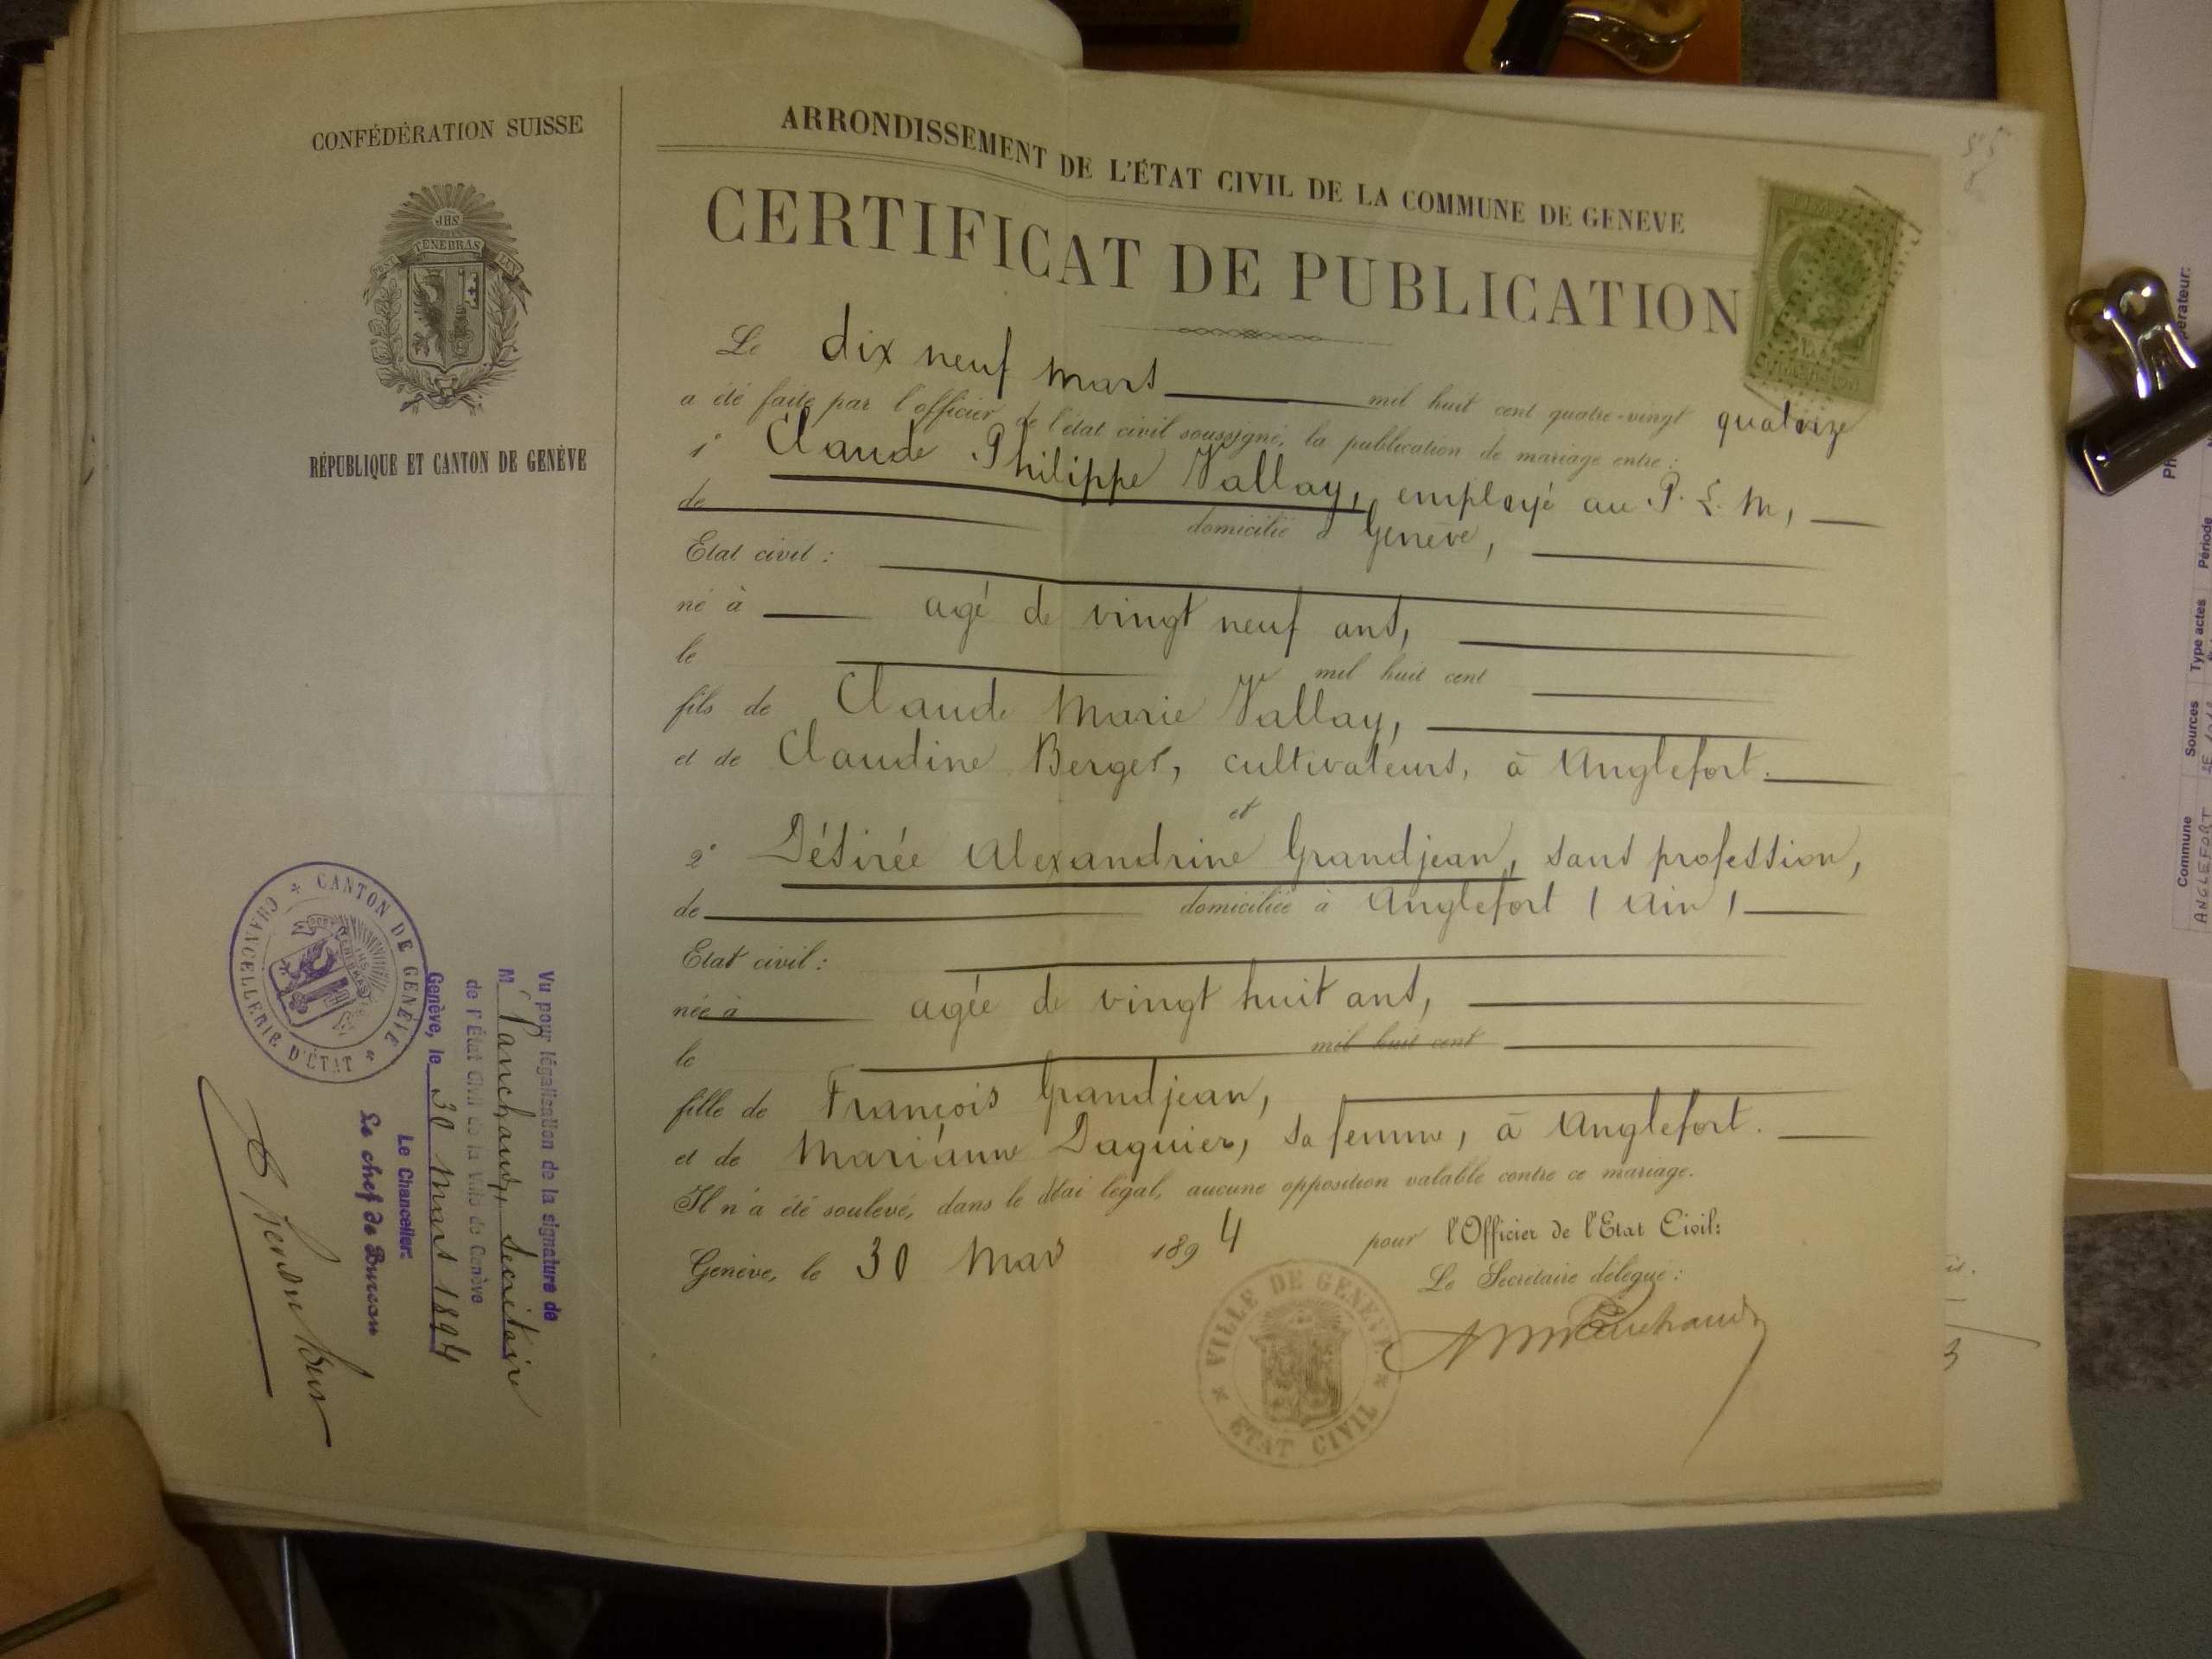 CONFÉDÉRATION SUISSE
JHS
POST TENEBRAS LUX
RÉPUBLIQUE ET CANTON DE GENÈVE
ARRONDISSEMENT DE L'ÉTAT CIVIL DE LA COMMUNE DE GENEVE
CERTIFICAT DE PUBLICATION
Le dix neuf mars mil huit cent quatre-vingt quatorze
a été faite par l'officier de l'état civil soussigné, la publication de mariage entre:
1° Claude Philippe Vallay, employé au P. L. M,
de domicilié à Genève,
Etat civil:
né à agé de vingt neuf ans,
le mil huit cent
fils de Claude Marie Vallay,
et de Claudine Berger, cultivateurs, à Anglefort.
et
2° Désirée Alexandrine Grandjean, sans profession,
de domiciliée à Anglefort (Ain)
Etat civil:
née à agée de vingt huit ans,
le mil huit cent
fille de François Grandjean,
et de Marianne Daguier, sa femme, à Anglefort.
Il n'a été soulevé, dans le délai légal, aucune opposition valable contre ce mariage.
Genève, le 30 Mars 1894
pour l'Officier de l'Etat Civil:
Le Secrétaire délégué:
VILLE DE GENÈVE
ETAT CIVIL
CANTON DE GENÈVE
CHANCELLERIE D'ÉTAT
Vu pour légalisation de la signature de
M Panchaud, secrétaire
de l'État Civil de la Ville de Genève
Genève, le 30 Mars 1894
Le Chancelier:
Le chef de Bureau
Commune Sources Type actes Période
ANGLEFORT
3